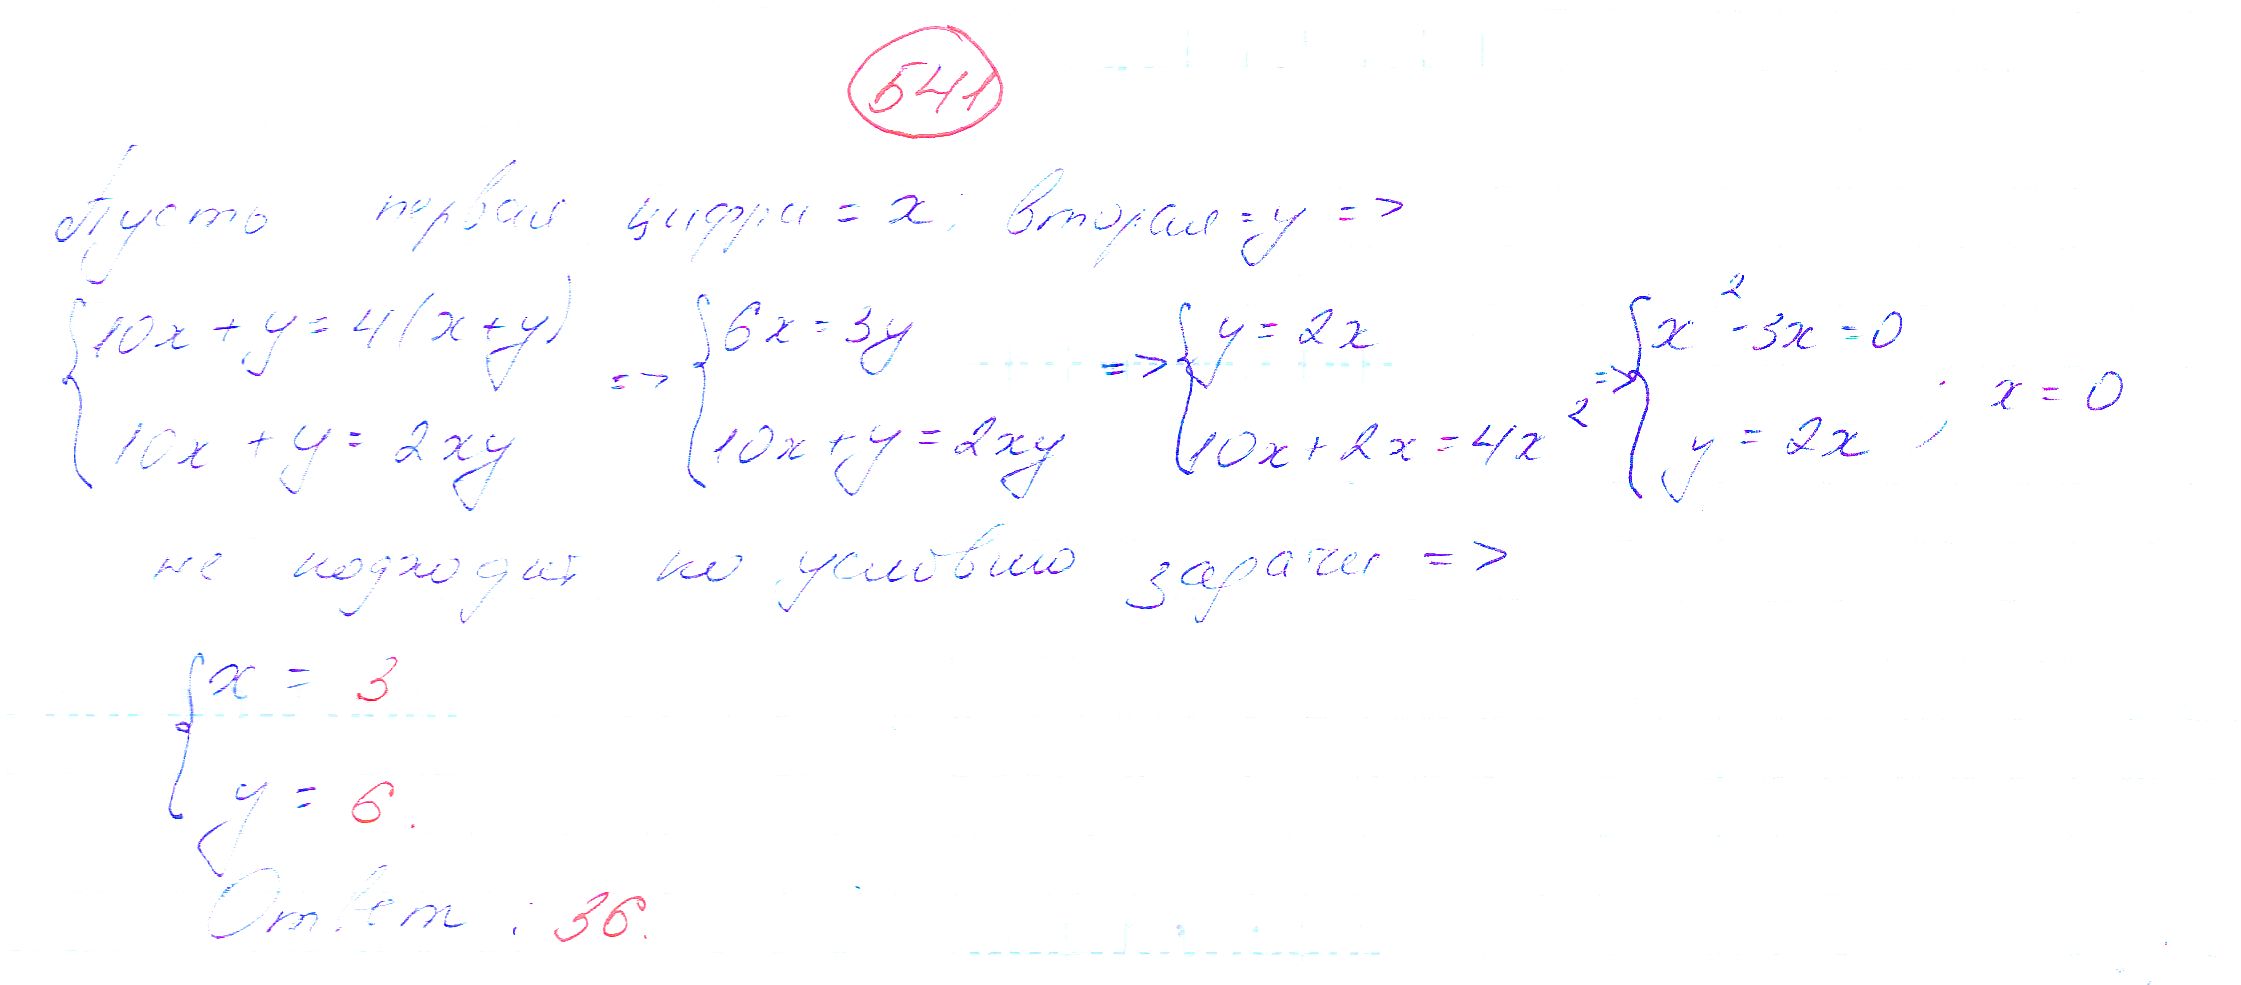 541
Пусть первая цифра = x; вторая = y =>
{10x + y = 4(x+y) => {6x = 3y => {y = 2x => {x² - 3x = 0
10x + y = 2xy 10x + y = 2xy 10x + 2x = 4x² y = 2x ; x = 0
не подходит по условию задачи =>
{x = 3
y = 6.
Ответ: 36.